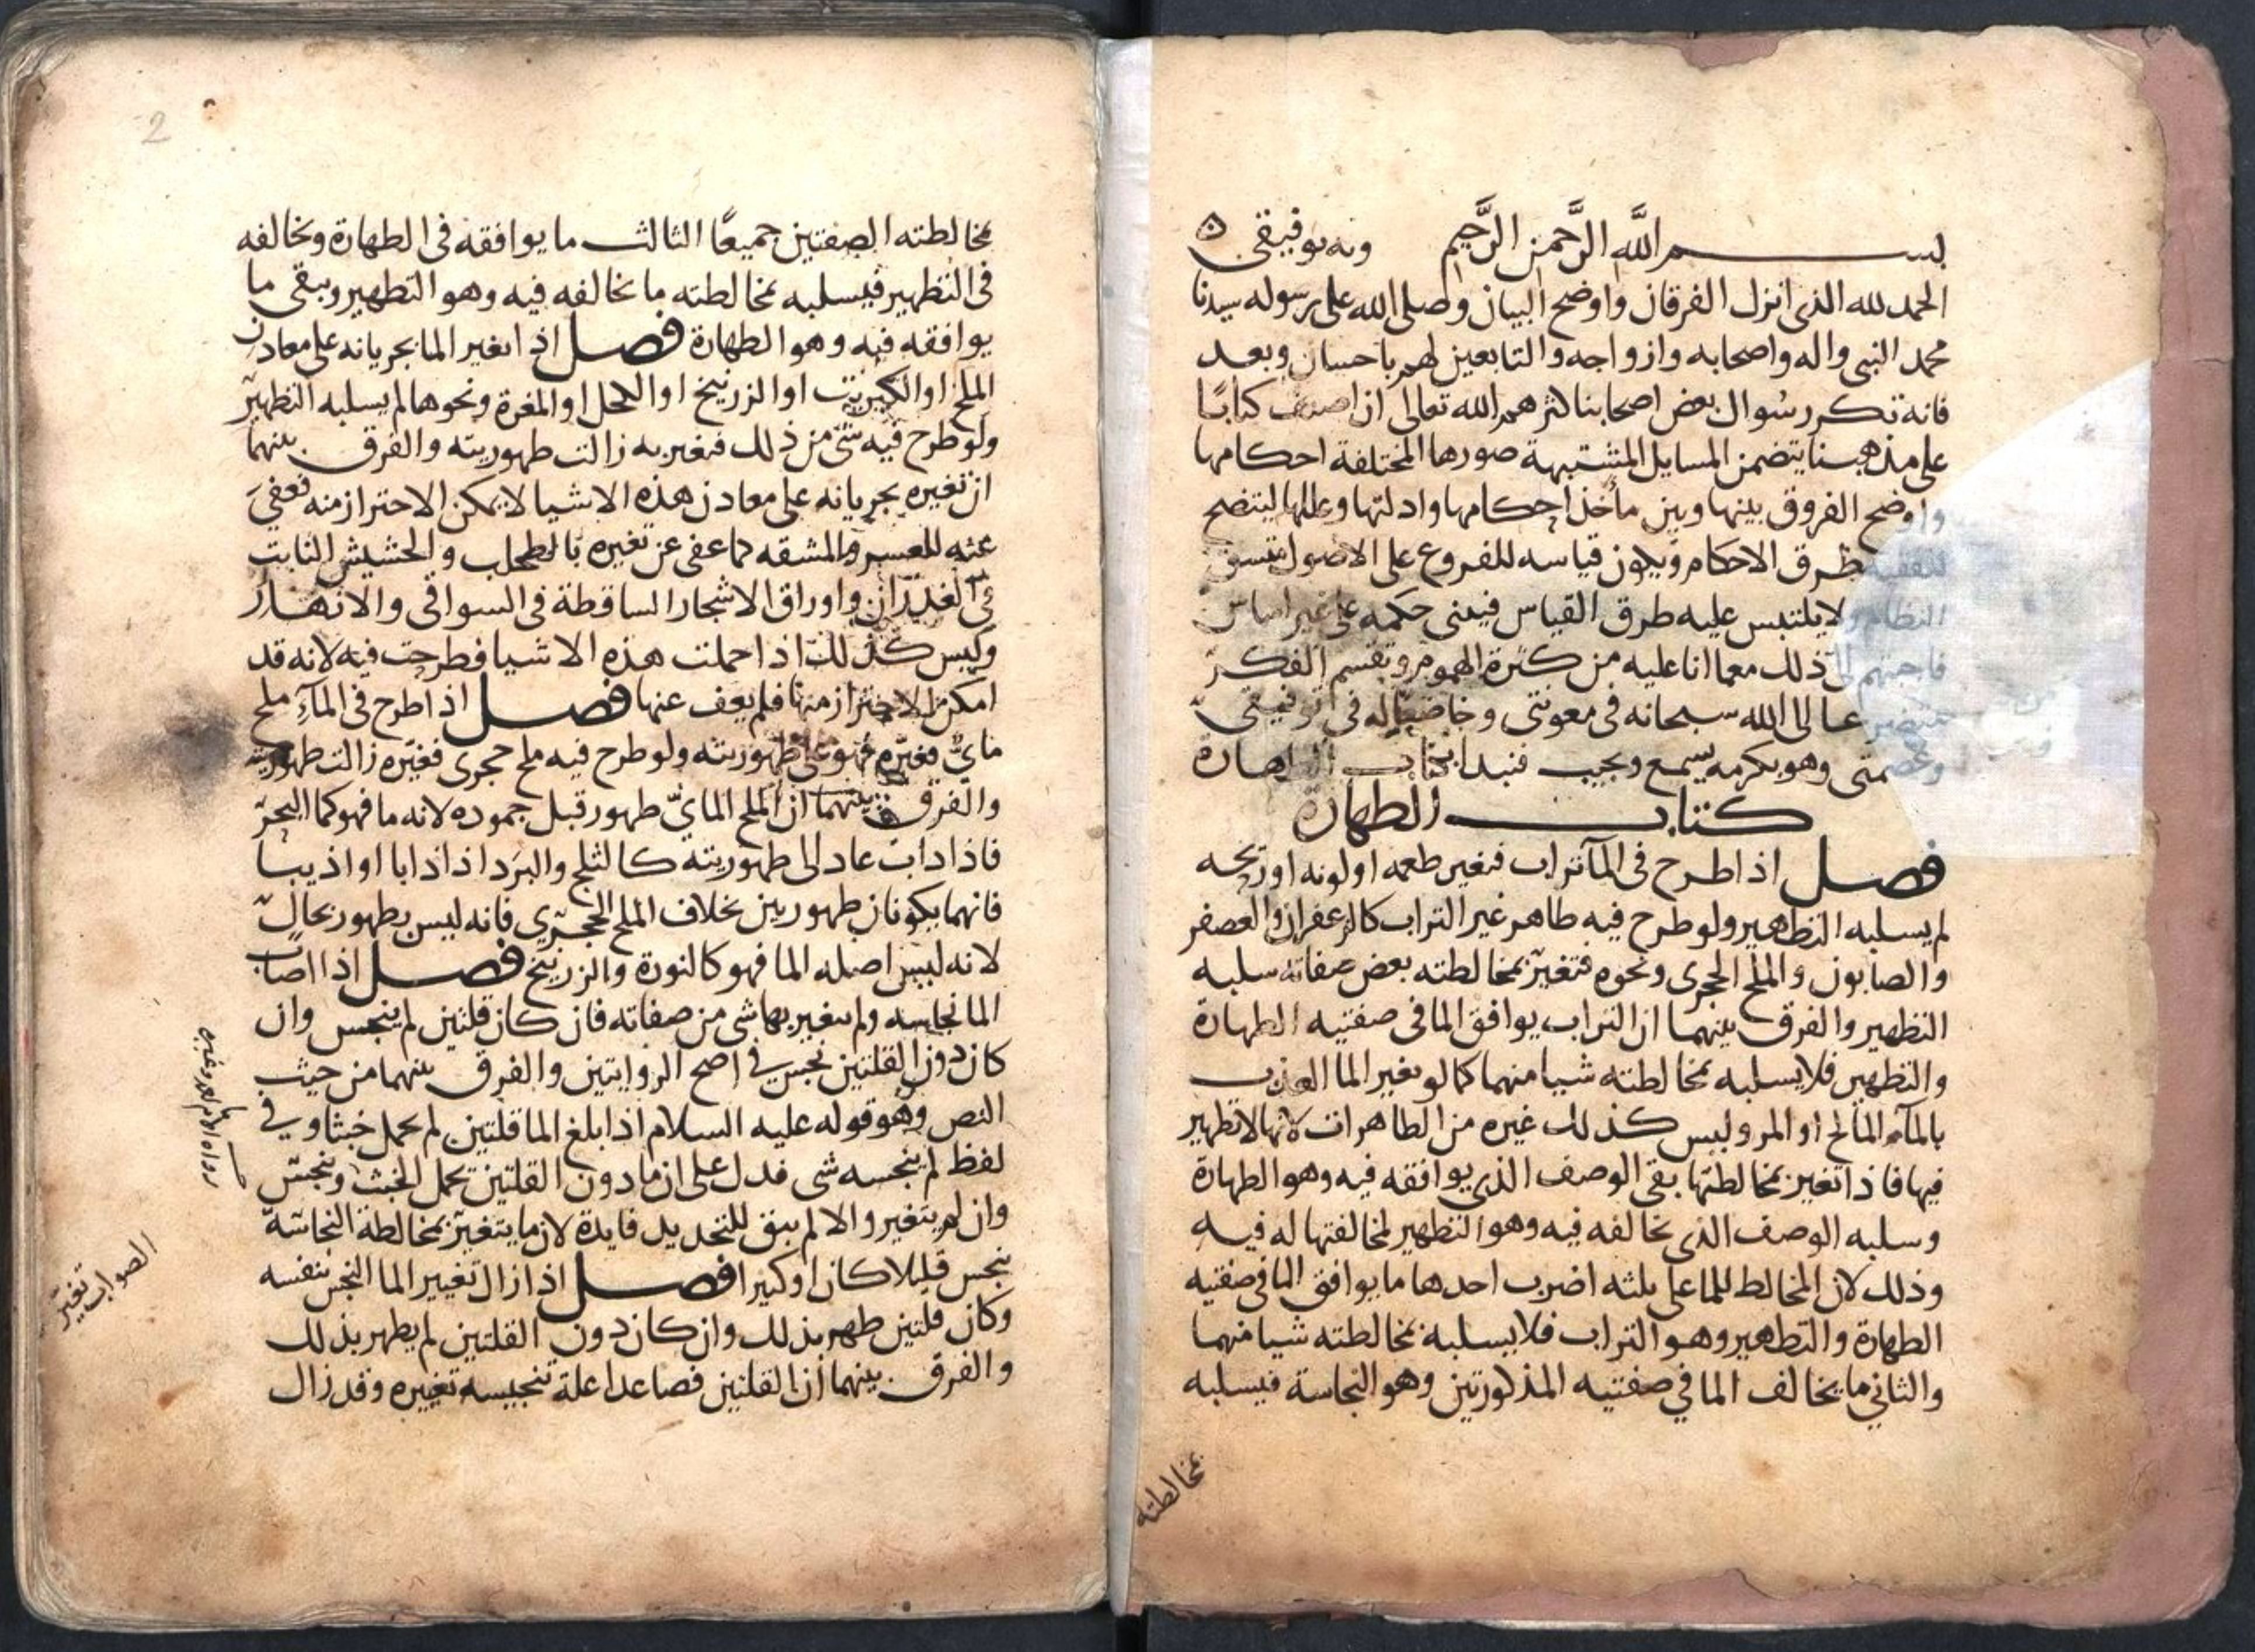 بســـم الله الرَّحمن الرَّحيم وبه توفيقى
الحمد لله الذى انزل الفرقان واوضح البيان وصلى الله على رسوله سيدنا
محمد النبى واله واصحابه وازواجه والتابعين لهم باحسان وبعد
فانه تكرر سُوال بعض اصحابنا كثرهم الله تعالى ان اصنف كتابًا
على مذهبنا يتضمن المسايل المشتبهة صورها المختلفة احكامها
واوضح الفروق بينها وبين مأخذ احكامها وادلتها وعللها ليتضح
للفقيه طرق الاحكام ويكون قياسه للفروع على الاصول متسق
النظام ولا يلتبس عليه طرق القياس فيبنى حكمه على غير اساس
فاجبتهم الى ذلك مع ما انا عليه من كثرة الهموم وتقسم الفكر
عا الى الله سبحانه فى معونتى وخاضعًا له فى توفيقى
وعصمتى وهو بكرمه يسمع ويجيب فنبدا بكتاب الطهارة
كتاب الطهارة
فصل اذا طرح فى المآ تراب فتغير طعمه او لونه او ريحه
لم يسلبه التطهير ولو طرح فيه طاهر غير التراب كالزعفران والعصفر
والصابون والملح الحجرى ونحوه فتغيّر بمخالطته بعض صفاته سلبه
التطهير والفرق بينهما ان التراب يوافق الما فى صفتيه الطهارة
والتطهير فلا يسلبه بمخالطته شيا منهما كما لو تغير الما العذب
بالمآء المالح او المر وليس كذلك غيره من الطاهرات لانها لا تطهير
فيها فاذا تغير بمخالطتها بقى الوصف الذى يوافقه فيه وهو الطهارة
وسلبه الوصف الذى تخالفه فيه وهو التطهير لمخالفتها له فيه
وذلك لان المخالط للما على ثلثه اضرب احدها ما يوافق الما فى صفتيه
الطهارة والتطهير وهو التراب فلا يسلبه بمخالطته شيا منهما
والثاني ما يخالف الما في صفتيه المذكورتين وهو النجاسة فيسلبه
بمخالطته
2
بمخالطته الصفتين جميعًا الثالث ما يوافقه فى الطهارة ويخالفه
فى التطهير فيسلبه بمخالطته ما يخالفه فيه وهو التطهير ويبقى ما
يوافقه فيه وهو الطهارة فصل اذا تغير الما بجريانه على معادن
الملح او الكبريت او الزرنيخ او الكحل او المغرة ونحوها لم يسلبه التطهير
ولو طرح فيه شى من ذلك فتغير به زالت طهوريته والفرق بينهما
ان تغيره بجريانه على معادن هذه الاشيا لا يمكن الاحتراز منه فعفيَ
عنه للعسر والمشقه كما عفى عن تغيره بالطحلب والحشيش النابت
في الغدران واوراق الاشجار الساقطة فى السواقى والانهار
وليس كذلك اذا حملت هذه الاشيا فطرحت فيه لانه قد
امكن الاحتراز منها فلم يعف عنها فصل اذا طرح فى المآءِ ملح
مايٌّ فغيّره فهو على طهوريته ولو طرح فيه ملح حجرى فغيّره زالت طهوريته
والفرق بينهما ان الملح المايّ طهور قبل جموده لانه ما فهو كما البحر
فاذا داب عاد الى طهوريته كالثلج والبرَد اذا ذابا او اذيبا
فانهما يكونان طهورين بخلاف الملح الحجرّي فانه ليس بطهور بحال
لانه ليس اصله الما فهو كالنورة والزرنيخ فصل اذا اصاب
الما نجاسه ولم يتغير بها شى من صفاته فان كان قلتين لم ينجس وان
كان دون القلتين نجس في اصح الروايتين والفرق بينهما من حيث
النص وهو قوله عليه السلام اذا بلغ الما قلتين لم يحمل خبثا وفي
لفظ لم ينجسه شى فدل على ان ما دون القلتين يحمل الخبث وينجسّ
وان لم يتغير والا لم يبق للتحديد فايدة لان ما يتغيّر بمخالطة النجاسة
ينجس قليلا كان او كثيرا فصل اذا زال تغيير الما النجس بنفسه
وكان قلتين طهر بذلك وان كان دون القلتين لم يطهر بذلك
والفرق بينهما ان القلتين فصاعدا علة تنجيسه تغييره وقد زال
رواه الامام احمد وغيره
الصواب تغيّر